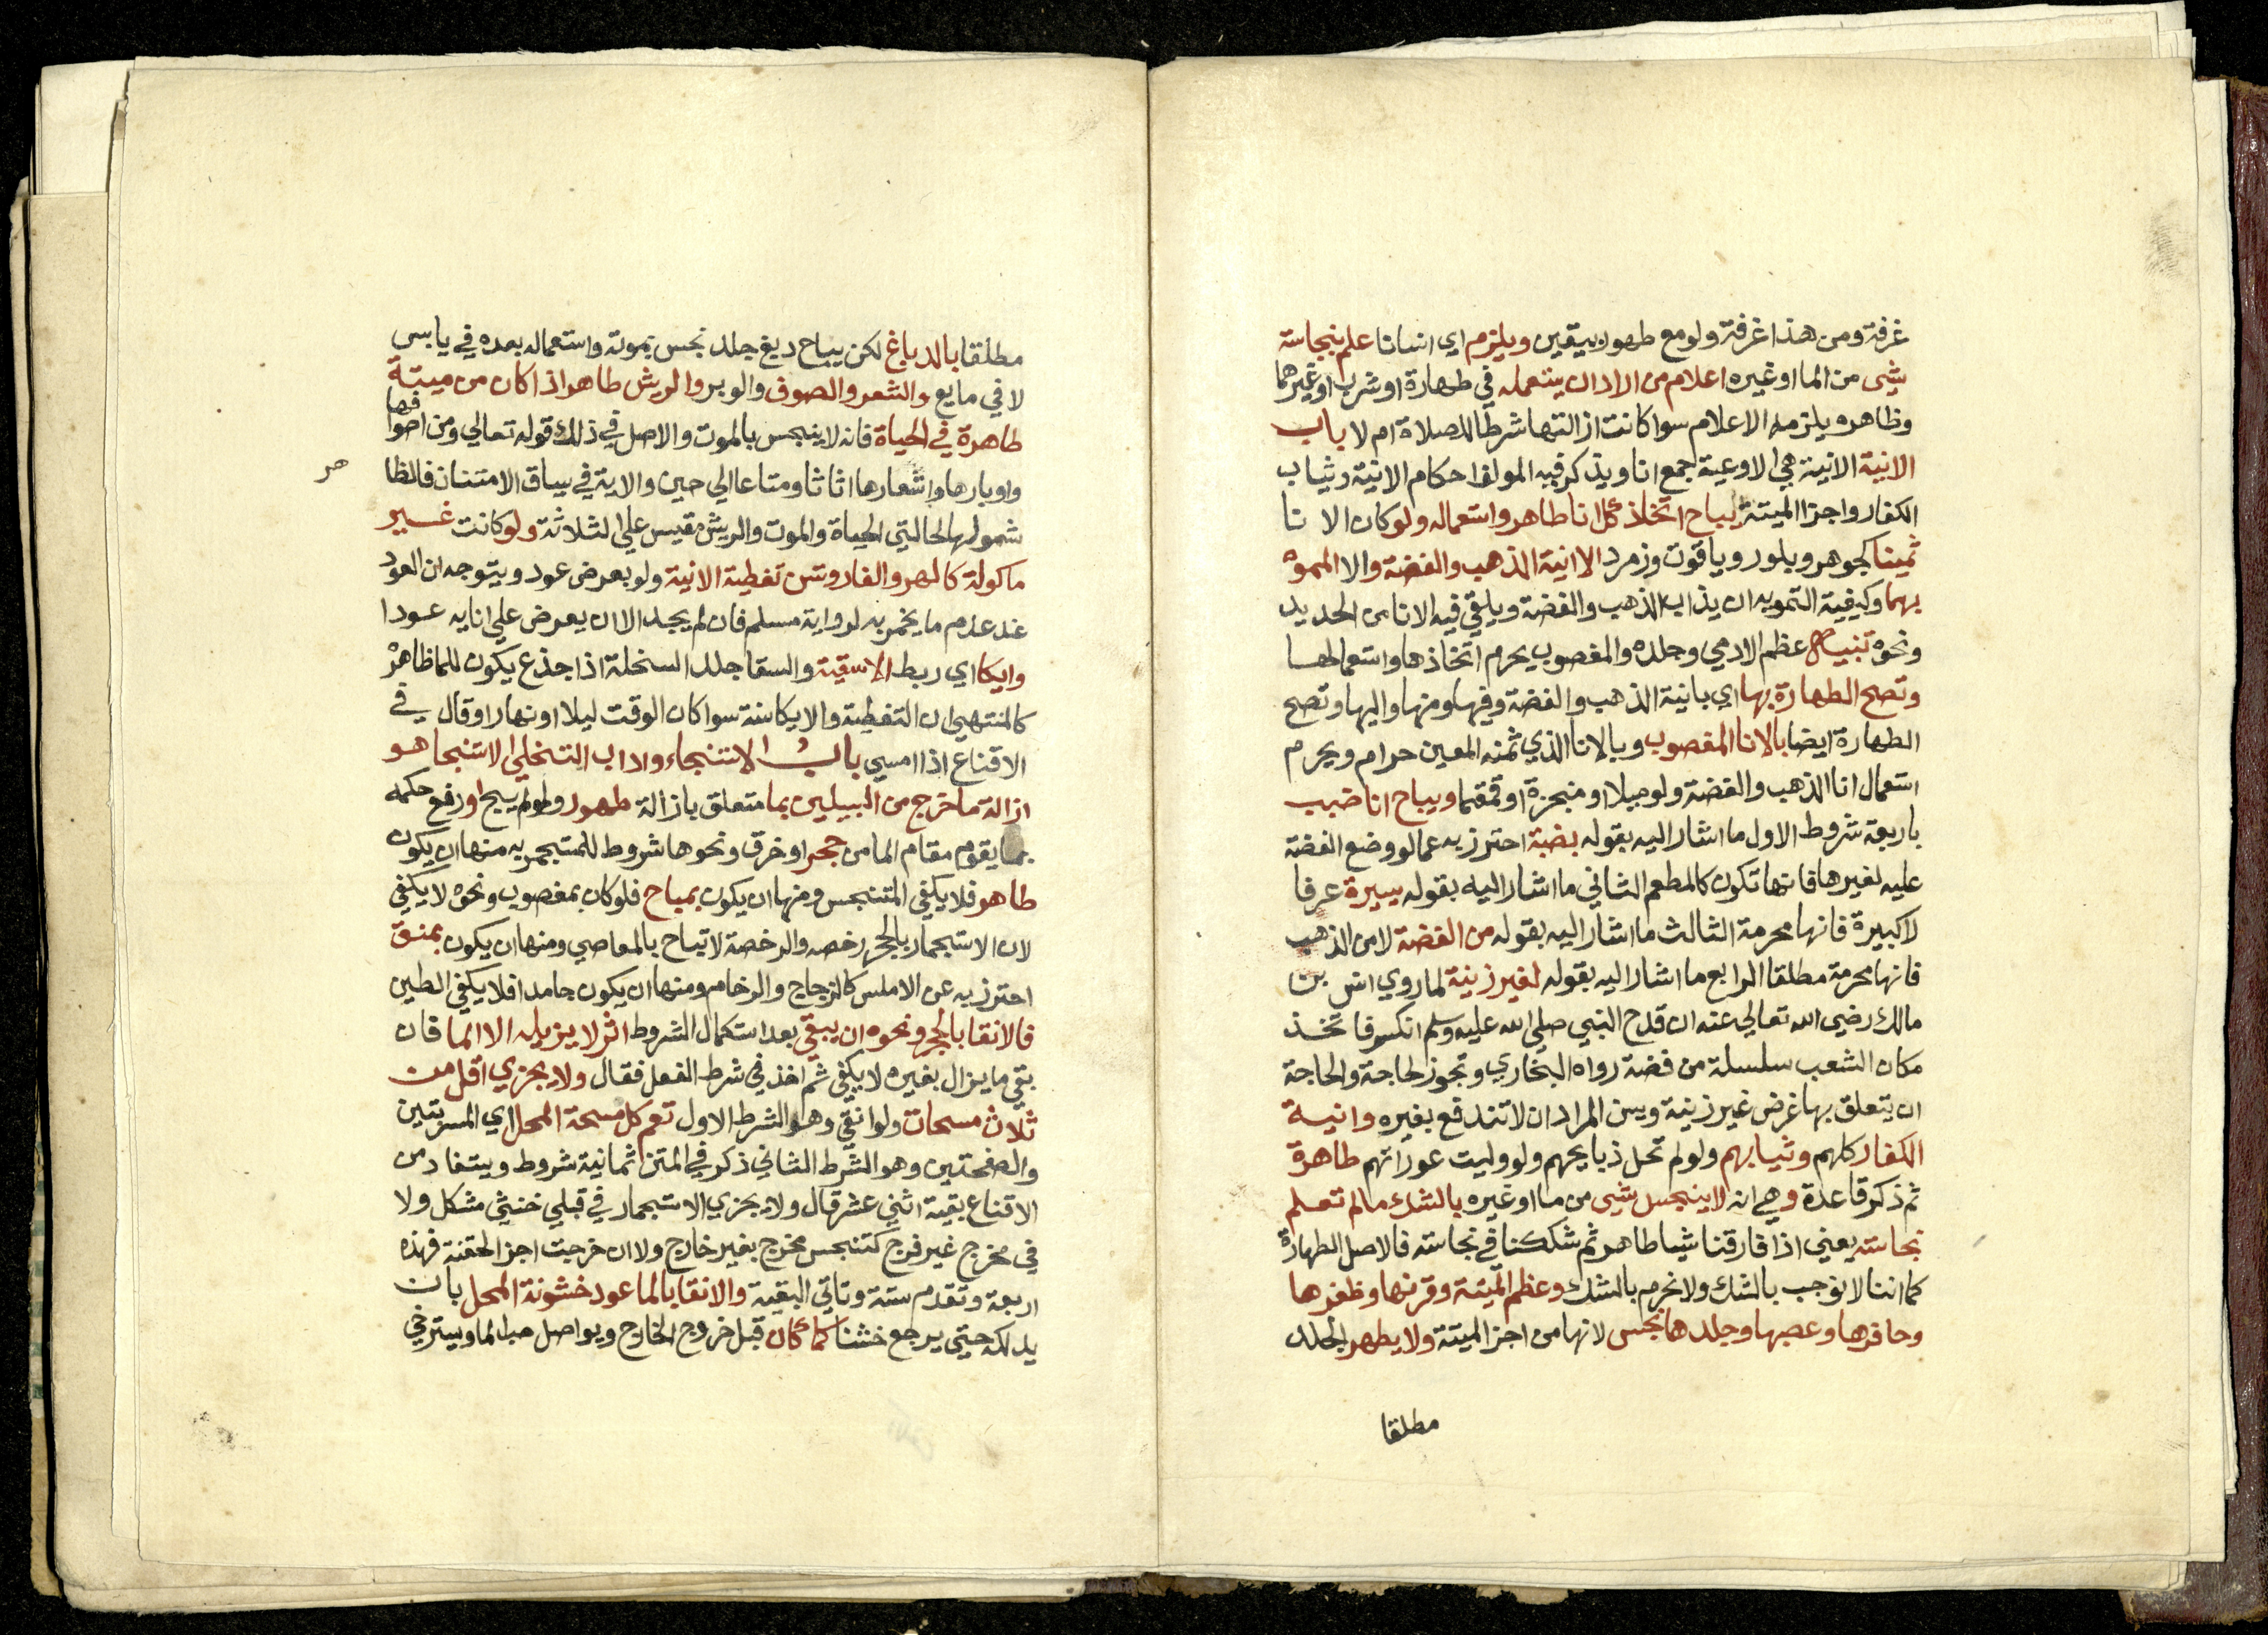 غرفة ومن هذا غرفة ولو مع طهور بيقين ويلزم اي انسانا علم بنجاسة
شي من الما او غيره اعلام من اراد ان يستعمله في طهارة او شرب او غيرهما
وظاهره يلزمه الاعلام سوا كانت ازالتها شرطا للصلاة ام لا باب
الانية الانية هي الاوعية جمع انا ويذكر فيه المولف احكام الانية وثياب
الكفار واجزا الميتة يباح اتخاذ كل انا طاهر واستعماله ولو كان الانا
ثمينا كجوهر وبلور وياقوت وزمرد الا انية الذهب والفضة والا المموه
بهما وكيفية التمويه ان يذاب الذهب والفضة ويلقي فيه الانا من الحديد
ونحوه تنبيه عظم الادمي وجلده والمغصوب يحرم اتخاذها واستعمالها
وتصح الطهارة بها اي بانية الذهب والفضة وفيها ومنها واليها وتصح
الطهارة ايضا بالانا المغصوب وبالانا الذي ثمنه المعين حرام ويحرم
استعمال انا الذهب والفضة ولو ميلا او مبخرة او قمقما ويباح انا ضبب
باربعة شروط الاول ما اشار اليه بقوله بضبة احترز به عما لو وضع الفضة
عليه لغيرها فانها تكون كالمطعم الثاني ما اشار اليه بقوله يسيرة عرفا
لا كبيرة فانها محرمة الثالث ما اشار اليه بقوله من الفضة لا من الذهب
فانها محرمة مطلقا الرابع ما اشار اليه بقوله لغير زينة لما روي انس بن
مالك رضي الله تعالي عنه ان قدح النبي صلي الله عليه وسلم انكسر فاتخذ
مكان الشعب سلسلة من فضة رواه البخاري وتجوز لحاجة والحاجة
ان يتعلق بها غرض غير زينة وليس المراد ان لا تندفع بغيره وانية
الكفار كلهم وثيابهم ولو لم تحل ذبايحهم ولو وليت عوراتهم طاهرة
ثم ذكر قاعدة وهي انه لا ينجس شي من ما او غيره بالشك ما لم تعلم
نجاسته يعني اذا فارقنا شيا طاهر ثم شككنا في نجاسته فالاصل الطهارة
كما اننا لا نوجب بالشك ولا نحرم بالشك وعظم الميتة وقرنها وظفرها
وحافرها وعصبها وجلدها نجس لانها من اجزا الميتة ولا يطهر الجلد
مطلقا
مطلقا بالدباغ لكن يباح دبغ جلد نجس بموته واستعماله بعده في يابس
لا في مايع والشعر والصوف والوبر والريش طاهر اذا كان من ميتة
طاهرة في الحياة فانه لا ينجس بالموت والاصل في ذلك قوله تعالي ومن اصوافها
واوبارها واشعارها اثاثا ومتاعا الي حين والاية في سياق الامتنان فالظا
هر
شمولها لحالتي الحياة والموت والريش مقيس علي الثلاثة ولو كانت غير
ماكولة كالهر والفار وتسن تغطية الانية ولو بعرض عود ويتوجه ان العود
عند عدم ما يخمر به لرواية مسلم فان لم يجد الا ان يعرض علي انايه عودا
وايكا اي ربط الاسقية والسقا جلد السخلة اذا جذع يكون للما ظاهره
كالمنتهي ان التغطية والايكا سنة سوا كان الوقت ليلا او نهارا وقال في
الاقناع اذا امسي باب الاستنجاء واداب التخلي الاستنجا هو
ازالة ما خرج من السبيلين بما متعلق بازالة طهور ولو لم يبح او رفع حكمه
بما يقوم مقام الما من حجر او خرق ونحوها شروط للمستجمر به منها ان يكون
طاهر فلا يكفي المتنجس ومنها ان يكون بمباح فلو كان بمغصوب ونحوه لا يكفي
لان الاستجمار بالحجر رخصه والرخصة لا تباح بالمعاصي ومنها ان يكون بمنق
احترز به عن الاملس كالزجاج والرخام ومنها ان يكون جامدا فلا يكفي الطين
فالانقا بالحجر ونحوه ان يبقي بعد استكمال الشروط اثر لا يزيله الا الما فان
بقي ما يزال بغيره لا يكفي ثم اخذ في شرط الفعل فقال ولا يجزي اقل من
ثلاث مسحات ولو انقي وهو الشرط الاول تعم كل مسحة المحل اي المسربتين
والصفحتين وهو الشرط الثاني ذكر في المتن ثمانية شروط ويستفاد من
الاقناع بقية اثني عشر قال ولا يجزي الاستجمار في قبلي خنثي مشكل ولا
في مخرج غير فرج كتنجس مخرج بغير خارج ولا ان خرجت اجزا لحقنة فهذه
اربعة وتقدم ستة وتاتي البقية والانقا بالما عود خشونة المحل بان
يدلكه حتي يرجع خشنا كما كان قبل خروج الخارج ويواصل صب الما ويسترخي